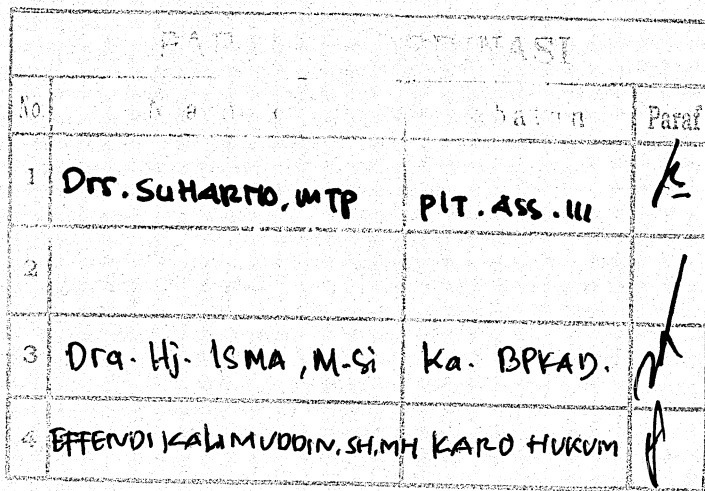 No. Paraf
1 Drs. SUHARMO, MTP PlT. ASS. III
2
3 Dra. Hj. ISMA, M.Si Ka. BPKAD.
4 EFFENDI KALIMUDDIN, SH, MH KARO HUKUM